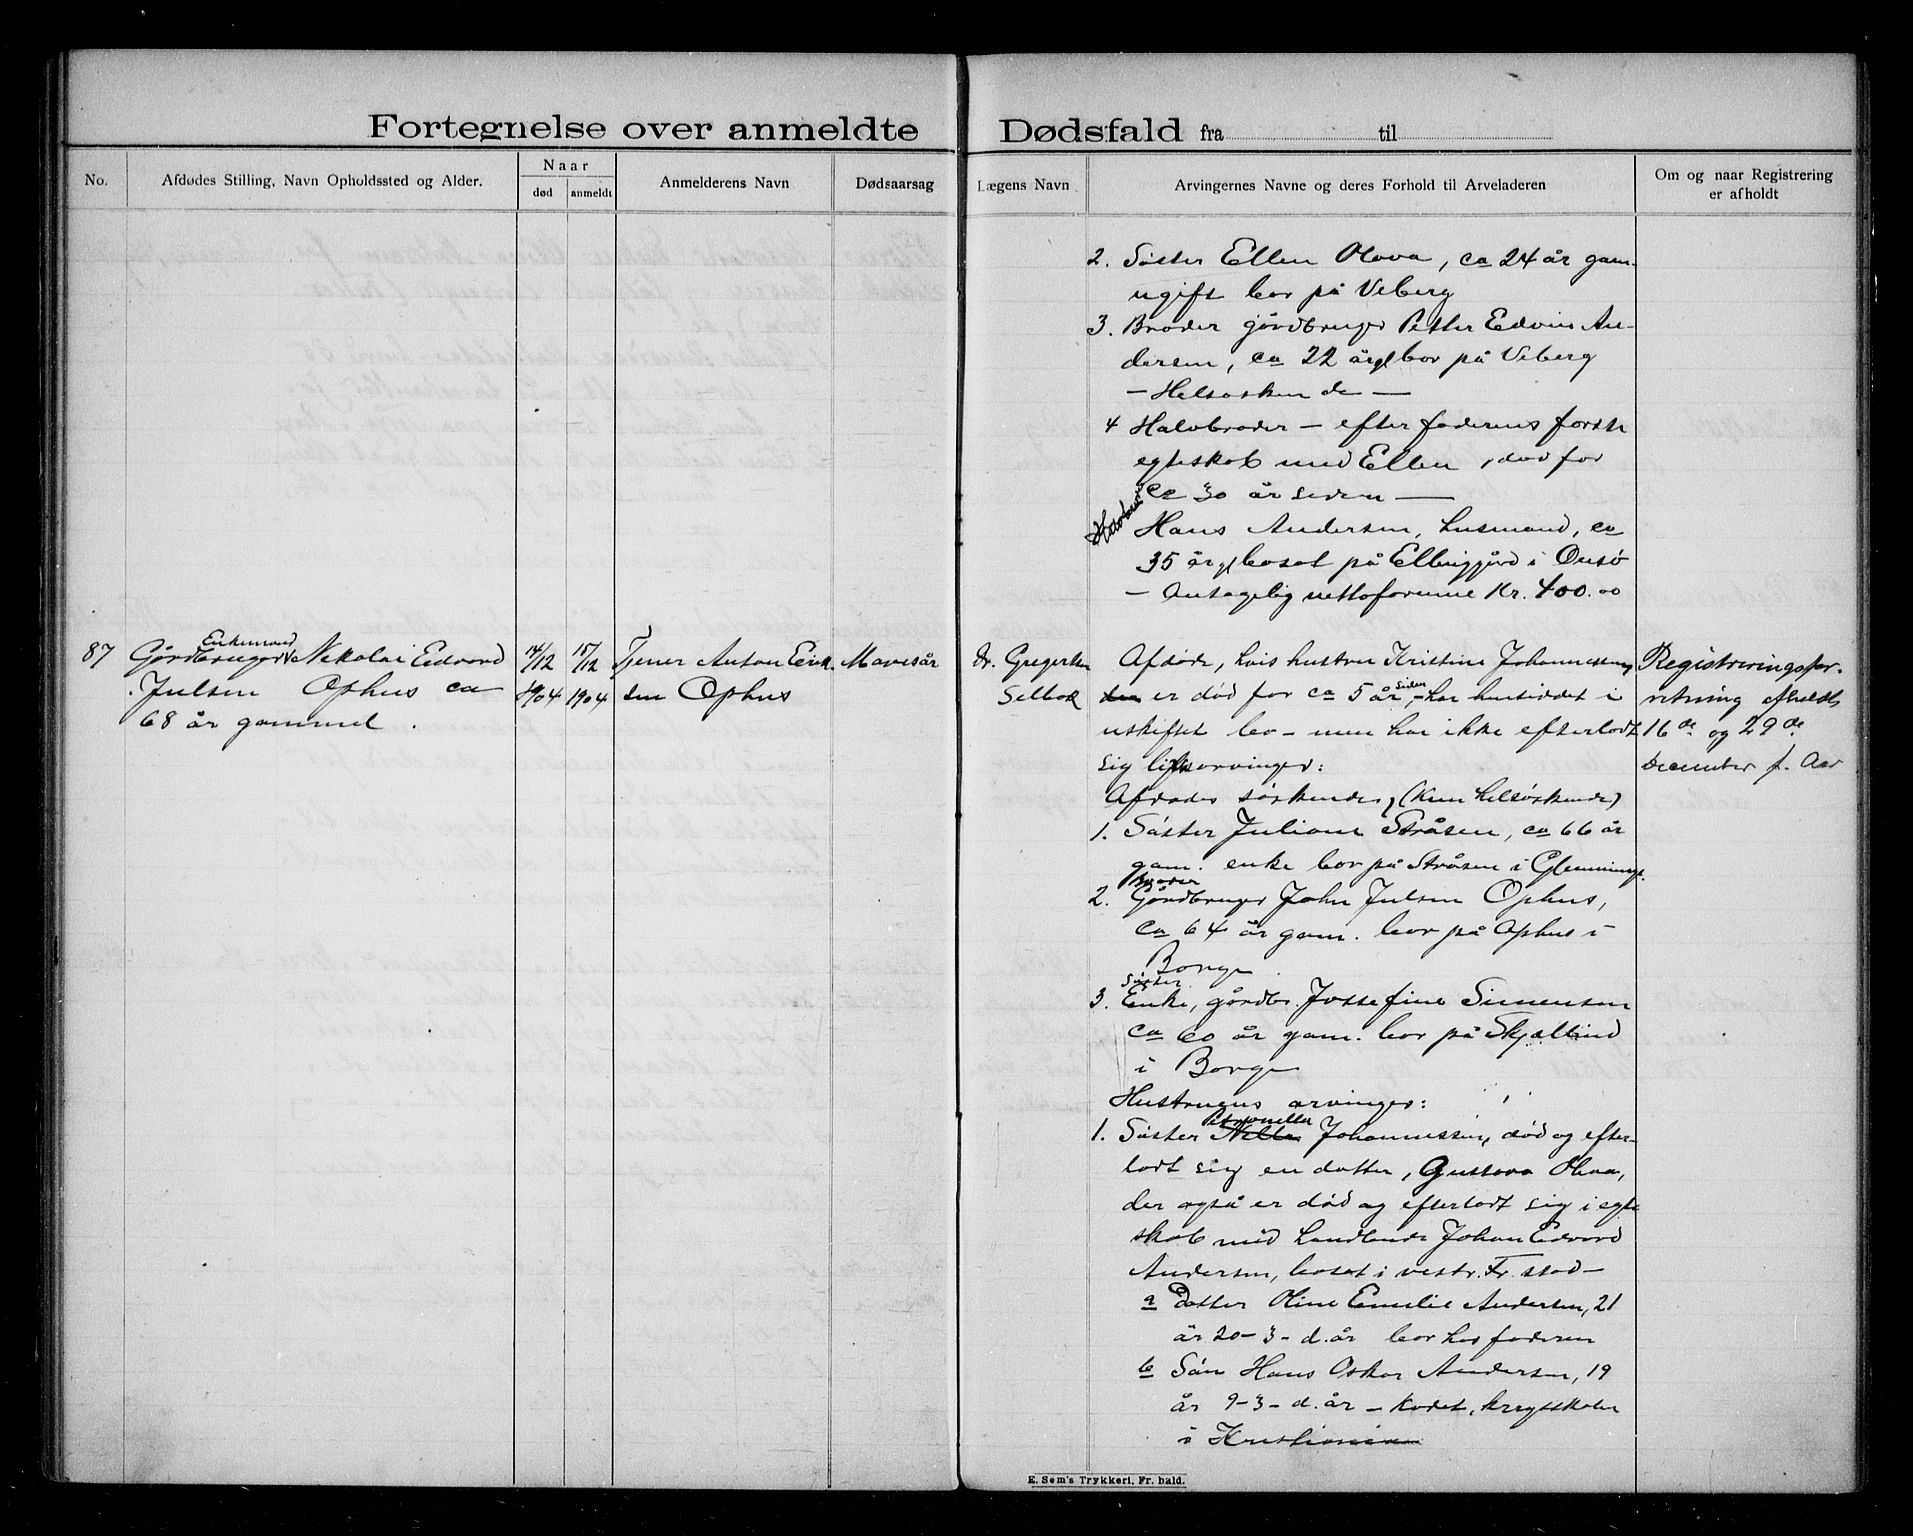 Fortegnelse over anmeldte Dødsfald fra til
No.
Afdødes Stilling, Navn Opholdssted og Alder.
Naar
død
anmeldt
Anmelderens Navn
Dødsaarsag
Lægens Navn
Arvingernes Navne og deres Forhold til Arveladeren
Om og naar Registrering
er afholdt
2. Søster Ellen Olava, ca 24 år gam.
ugift bor på Veberg
3. Broder gårdbruger Petter Edvin An-
dersen, ca 22 år gl bor på Veberg
— Helsøskende —
4 Halvbroder — efter faderens første
egteskab med Ellen, død for
ca 30 år siden —
Halvbror
Hans Andersen, husmand, ca
35 år gl bosat på Ellinggård i Onsø
— Antagelig nettoformue Kr. 400.00
87
Enkemand
Gårdbruger Nikolai Edvard
Julsen Ophus ca
68 år gammel.
14/12
1904
15/12
1904
Tjener Anton Erik
sen Ophus
Mavesår
Dr. Gregertsen
Selbak
Afdøde, hvis hustru Kristine Johannessen
er død for ca 5 år siden, – har hensiddet i
uskiftet bo – men har ikke efterladt
sig livsarvinger:
Afdødes søskende, (Kun helsøskende)
1. Søster Juliane Stråsen, ca 66 år
gam. enke bor på Stråsen i Glemminge.
Broder
2. Gårdbruger John Julsen Ophus,
ca 64 år gam. bor på Ophus i
Borge.
Søster
3. Enke, gårdbr. Jossefine Simensen
ca 60 år gam. bor på Skjællind
i Borge
Hustruens arvinger:
Petronella
1. Søster Nella Johannessen, død og efter-
lodt sig en datter, Gustava Olava,
der også er død og efterlodt sig i egte
skab med landhandl. Johan Edvard
Andersen, bosat i vestr. Fr.stad –
a Datter Oline Emilie Andersen, 21
år 20-3- d. år bor hos faderen
b Søn Hans Oskar Andersen, 19
år 9-3- d. år – Kadet, krigsskolen
i Kristiania
Registreringsfor-
retning afholdt
16de og 29de
December f. Aar
E. Sem's Trykkeri, Fr. hald.